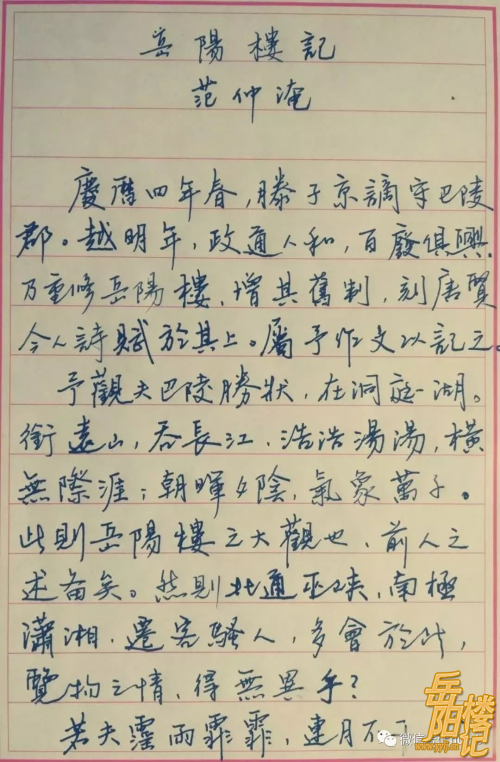 岳陽樓記
范仲淹
慶曆四年春,滕子京謫守巴陵
郡。越明年,政通人和,百廢俱興.
乃重修岳陽樓,增其舊制,刻唐賢
今人詩賦於其上。屬予作文以記之。
予觀夫巴陵勝狀,在洞庭一湖。
銜遠山,吞長江,浩浩湯湯,橫
無際涯;朝暉夕陰,氣象萬千。
此則岳陽樓之大觀也,前人之
述备矣。然則北通巫峽,南極
瀟湘,遷客騷人,多會於此,
覽物之情,得無異乎?
若夫霪雨霏霏,連月不
微信
岳阳楼记